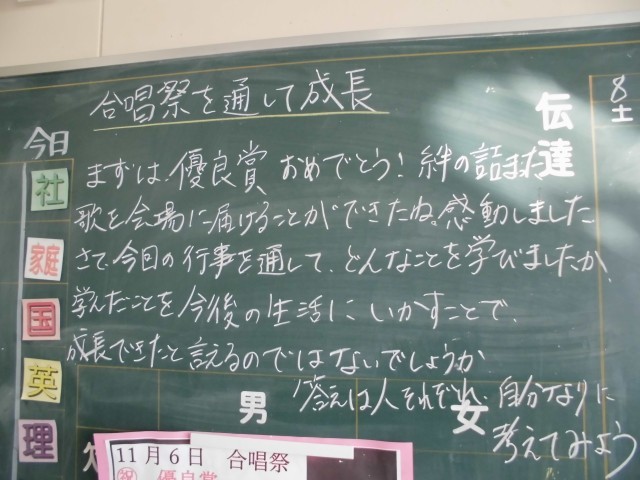 合唱祭を通して成長
伝達
8
土
今日
まずは、優良賞 おめでとう！絆の詰まった
歌を会場に届けることができたね。感動しました。
さて、今回の行事を通して、どんなことを学びましたか。
学んだことを今後の生活にいかすことで、
成長できたと言えるのではないでしょうか
答えは人それぞれ、自分なりに
考えてみよう
社
家庭
国
英
理
男
女
11月6日 合唱祭
祝 優良賞